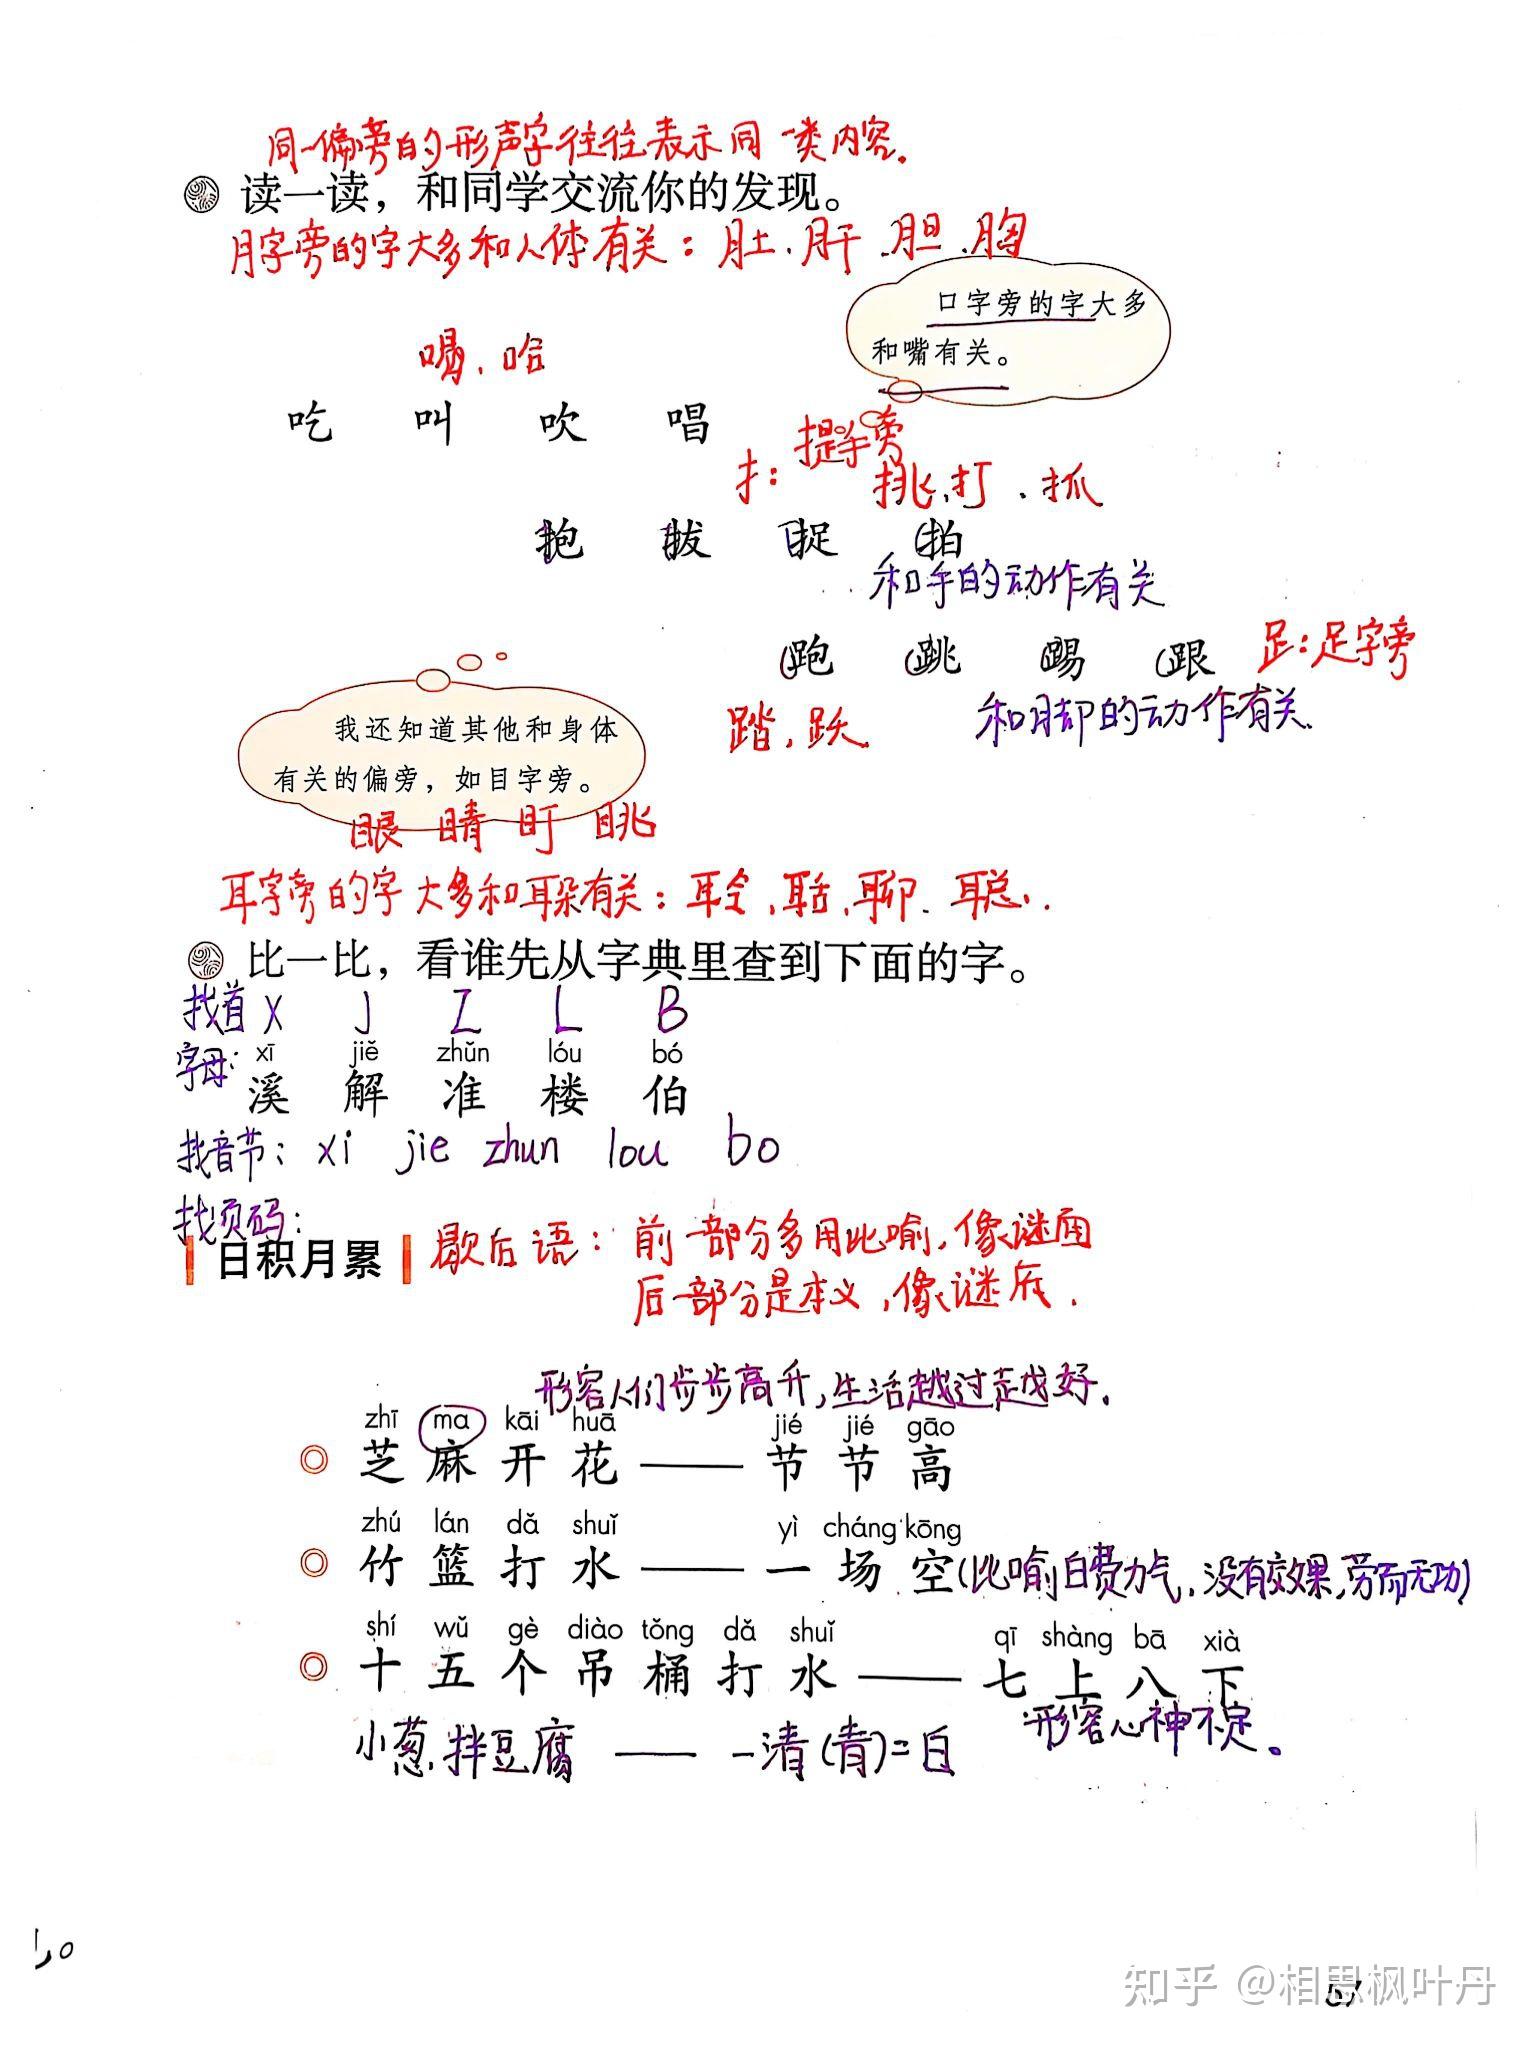 同一偏旁的形声字往往表示同一类内容.
读一读，和同学交流你的发现。
月字旁的字大多和人体有关：肚.肝.胆.胸
口字旁的字大多
和嘴有关。
喝、哈
吃 叫 吹 唱
扌：提手旁
挑.打.抓
抱 拔 捉 拍
和手的动作有关
跑 跳 踢 跟
𧾷：足字旁
踏，跃
和脚的动作有关.
我还知道其他和身体
有关的偏旁，如目字旁。
眼 睛 盯 眺
耳字旁的字大多和耳朵有关：聆，聒，聊、聪.
比一比，看谁先从字典里查到下面的字。
找首 X J Z L B
字母：
xī jiě zhǔn lóu bó
溪 解 准 楼 伯
找音节：xi jie zhun lou bo
找页码：
日积月累
歇后语：前一部分多用比喻，像谜面
后一部分是本义，像谜底.
形容人们步步高升，生活越过越好.
zhī ma kāi huā jié jié gāo
芝麻开花——节节高
zhú lán dǎ shuǐ yì cháng kōng
竹篮打水——一场空(比喻白费力气，没有效果，劳而无功)
shí wǔ gè diào tǒng dǎ shuǐ qī shàng bā xià
十五个吊桶打水——七上八下
形容心神不定。
小葱拌豆腐——一清(青)二白
57
知乎 @相思枫叶丹